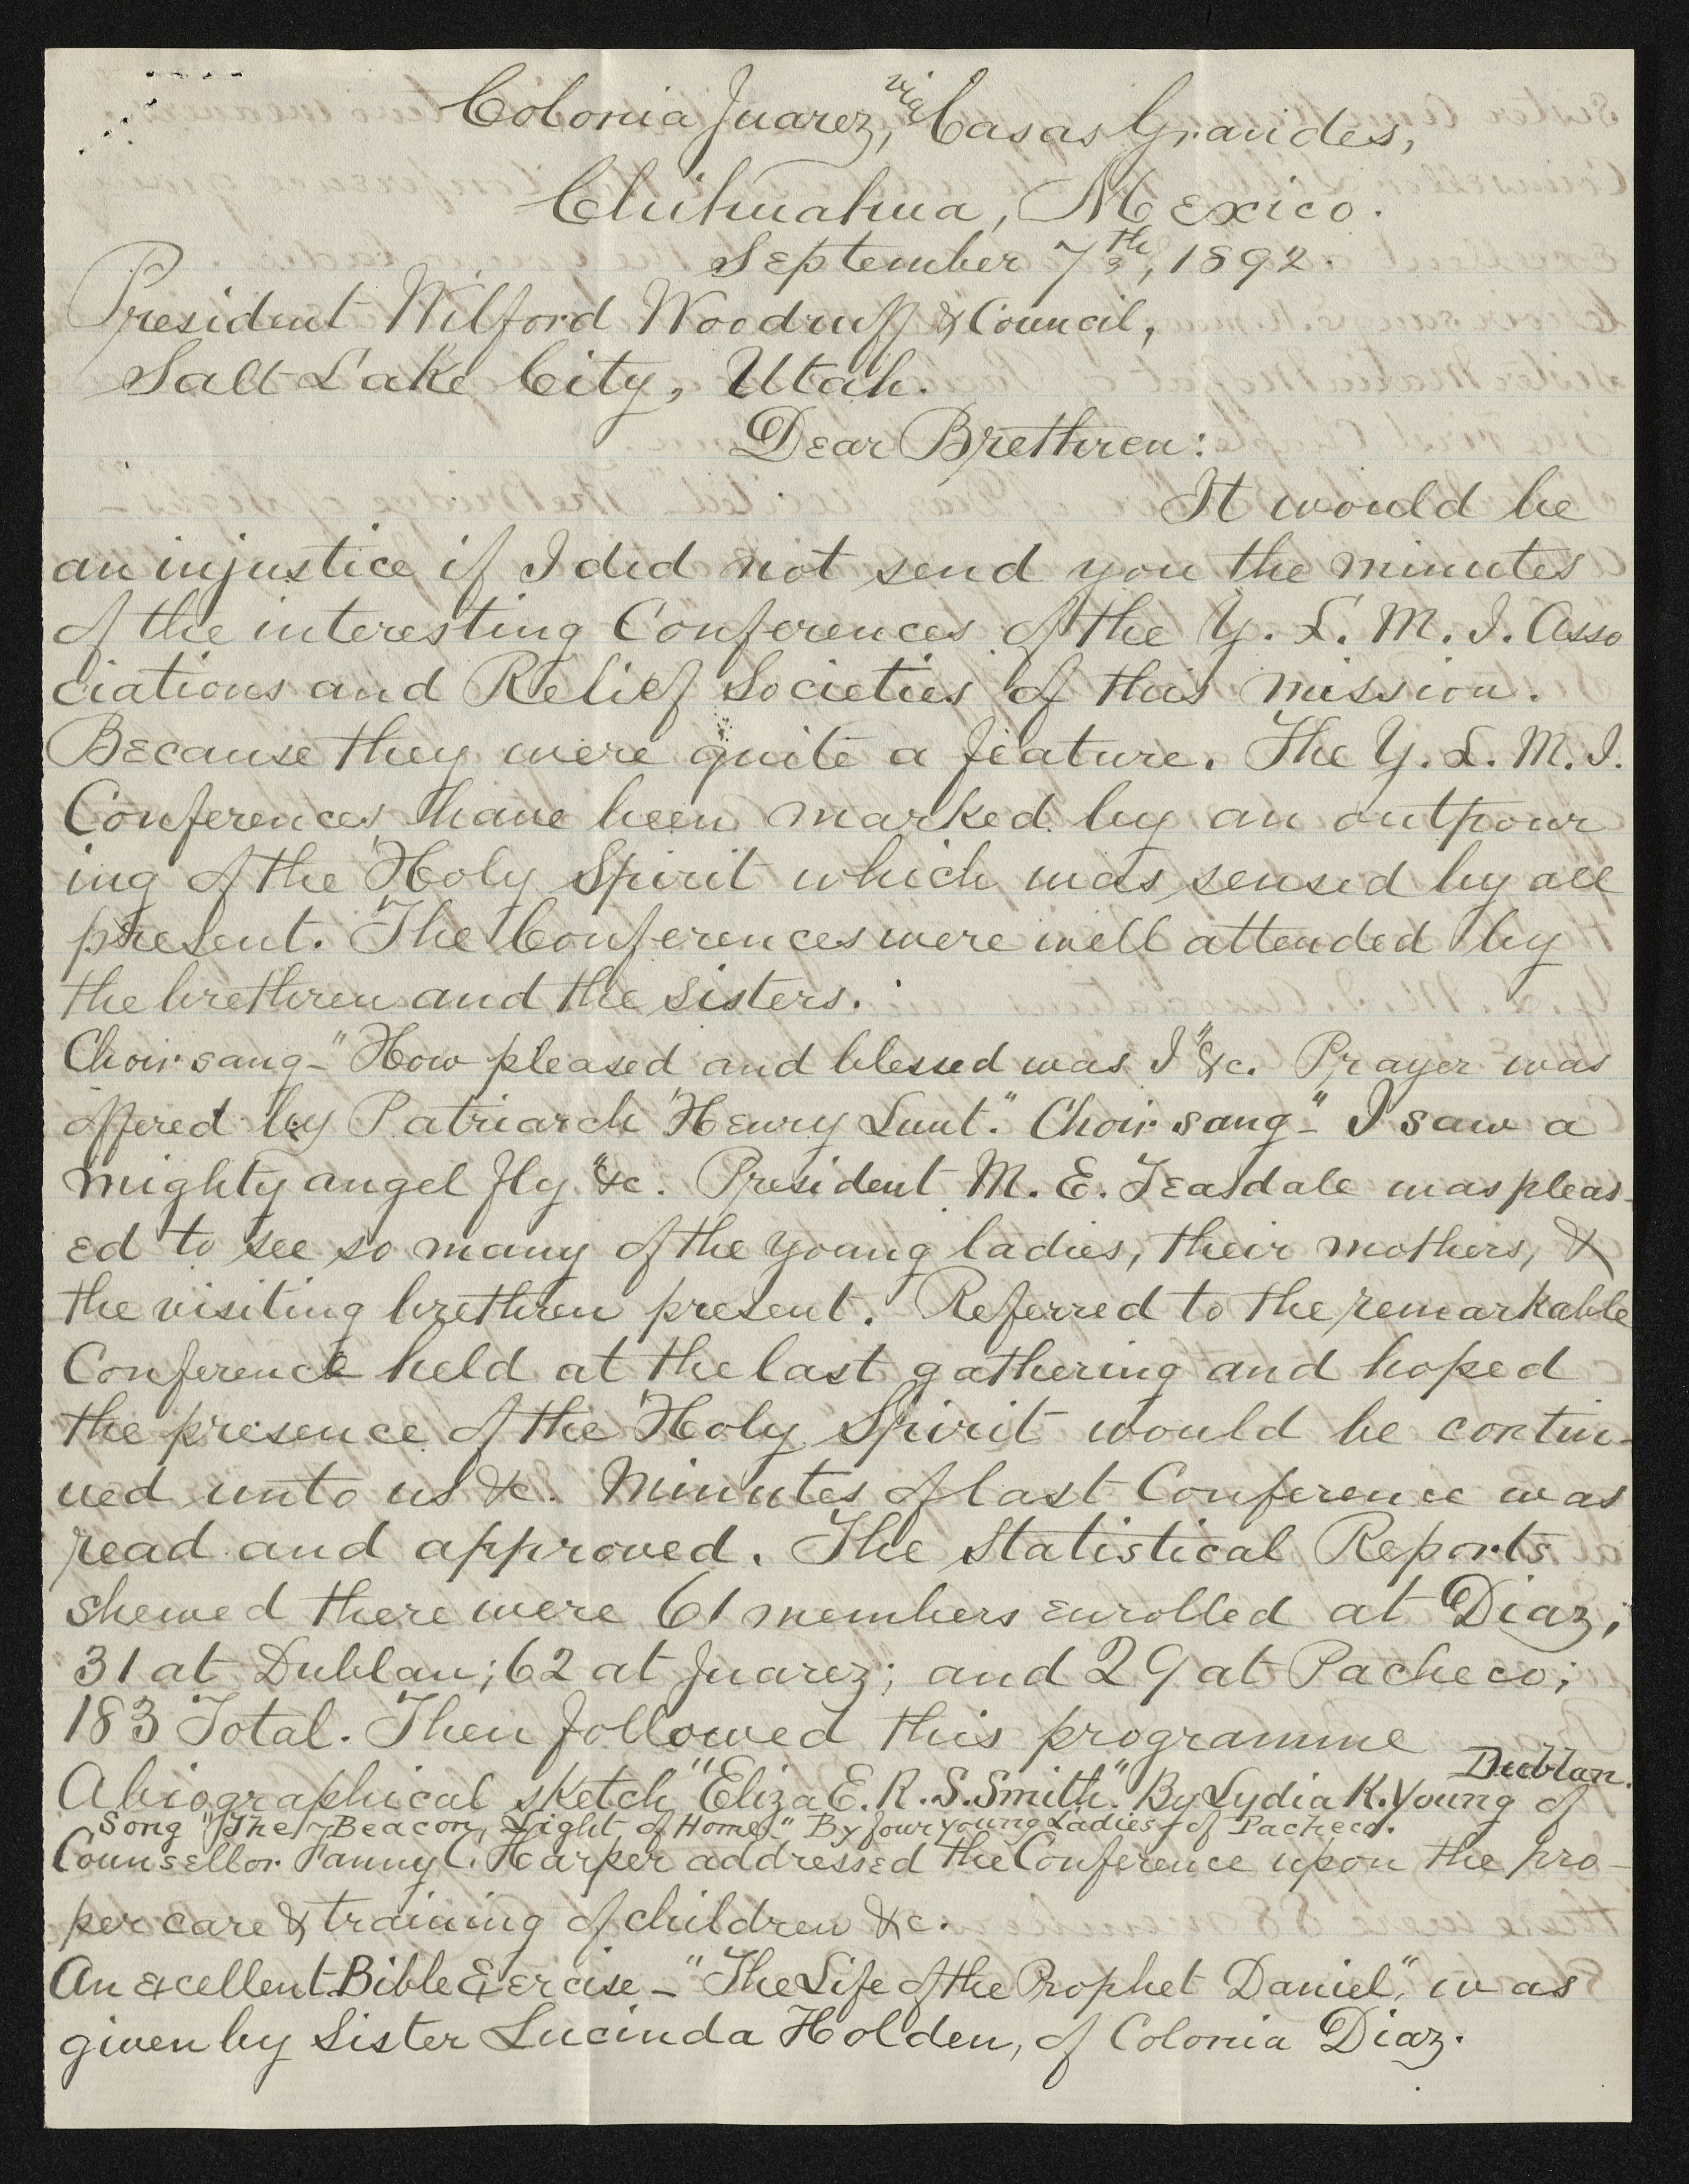 Colonia Juarez, via Casas Grandes,
Chihuahua, Mexico.
September 7th, 1892.
President Wilford Woodruff & Council,
Salt Lake City, Utah.
Dear Brethren:
It would be
an injustice if I did not send you the minutes
of the interesting Conferences of the Y. L. M. I. Asso
ciations and Relief Societies of this mission.
Because they were quite a feature. The Y. L. M. I.
Conferences have been marked by an outpour
ing of the Holy Spirit which was sensed by all
present. The Conferences were well attended by
the brethren and the sisters.
Choir sang - "How pleased and blessed was I" &c. Prayer was
offered by Patriarch Henry Lunt." Choir sang - "I saw a
mighty angel fly" &c. President M. E. Teasdale was pleas-
ed to see so many of the young ladies, their mothers, &
the visiting brethren present. Referred to the remarkable
Conference held at the last gathering and hoped
the presence of the Holy Spirit would be contin-
ued unto us &c. Minutes of last Conference was
read and approved. The Statistical Reports
shewed there were 61 members enrolled at Diaz;
31 at Dublan; 62 at Juarez; and 29 at Pacheco;
183 Total. Then followed this programme
A biographical sketch "Eliza E. R. S. Smith." By Lydia K. Young of Dublan.
Song "The Beacon, Light of Home." By four young Ladies of Pacheco.
Counsellor Fanny C. Harper addressed the Conference upon the pro-
per care & training of children &c.
An excellent Bible Exercise - "The Life of the Prophet Daniel", was
given by Sister Lucinda Holden, of Colonia Diaz.